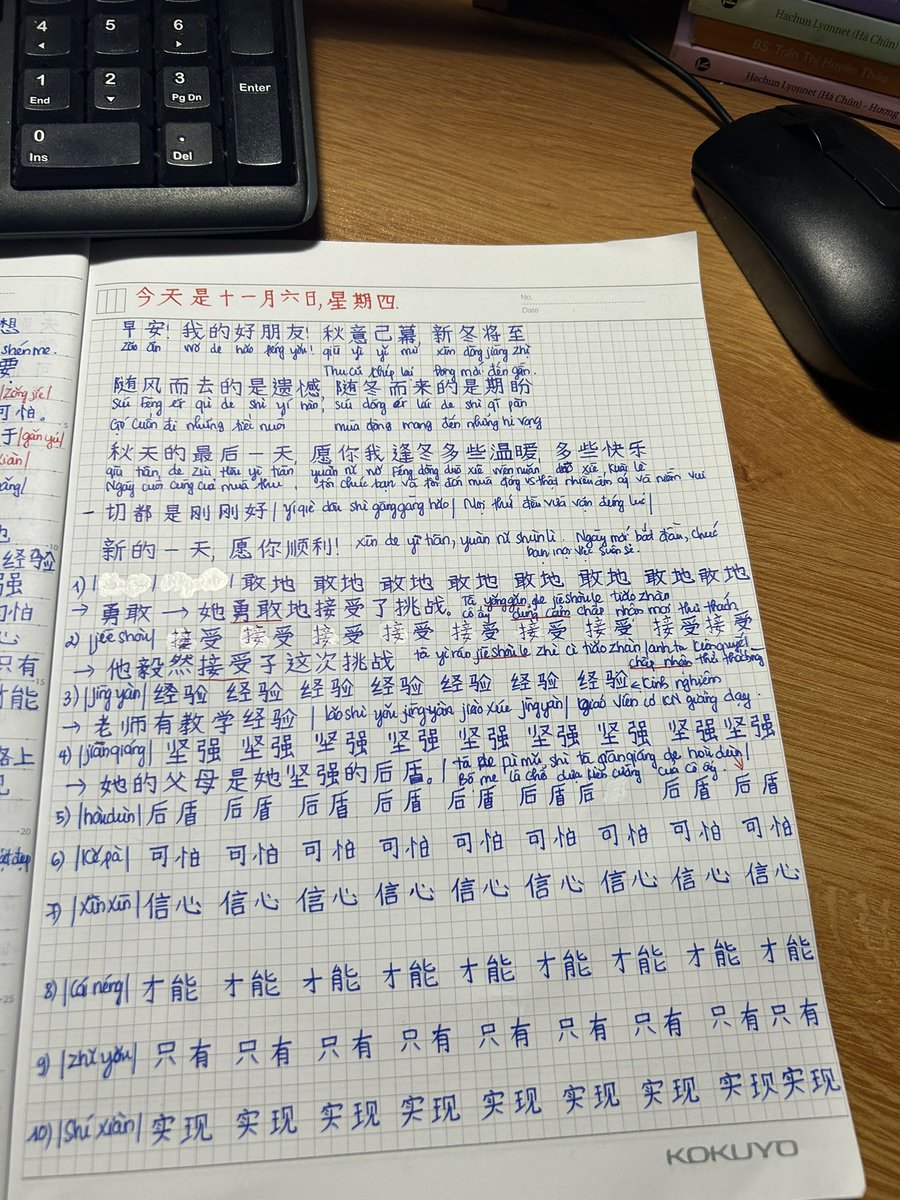 4 5 6
1 2 3 Enter
End Pg Dn
0 .
Ins Del
Hachun Lyonnet (Hà Chũn)
BS. Trần Thị Huyên Thảo
Hachun Lyonnet (Hà Chũn) - Hương
No.
Date
今天是十一月六日,星期四.
早安! 我的好朋友! 秋意已幕, 新冬将至
zǎo ān wǒ de hǎo péng yǒu! qiū yì yǐ mù xīn dōng jiāng zhì
Thu cũ khép lại Đông mới đến gần.
随风而去的是遗憾, 随冬而来的是期盼
suí fēng ér qù de shì yí hàn, suí dōng ér lái de shì qī pàn
Gió cuốn đi những tiếc nuối mùa đông mang đến những hi vọng
秋天的最后一天, 愿你我逢冬多些温暖 多些快乐
qiū tiān de zuì hòu yì tiān yuàn nǐ wǒ féng dōng duō xiē wēn nuǎn duō xiē kuài lè
Ngày cuối cùng của mùa thu, tôi chúc bạn và tôi đón mùa đông và thật nhiều ấm áp và niềm vui
一切都是刚刚好 |yí qiè dōu shì gāng gāng hǎo| Mọi thứ đều vừa vặn đúng lúc|
新的一天, 愿你顺利! xīn de yì tiān, yuàn nǐ shùn lì. Ngày mới bắt đầu, chúc
bạn mọi việc suôn sẻ.
1) 敢地 敢地 敢地 敢地 敢地 敢地 敢地敢地
→ 勇敢 → 她勇敢地接受了挑战。 Tā yǒng gǎn de jiē shòu le tiǎo zhàn
cô ấy dũng cảm chấp nhận mọi thử thách
2) |jiē shòu| 接受 接受 接受 接受 接受 接受 接受 接受接受
→ 他毅然接受了这次挑战 tā yì rán jiē shòu le zhè cì tiǎo zhàn |anh ta kiên quyết
chấp nhận thử thách
3) |jīng yàn| 经验 经验 经验 经验 经验 经验 经验 ← Kinh nghiệm
→ 老师有教学经验 | lǎo shī yǒu jīng yàn jiào xué jīng yàn| Giáo viên có KN giảng dạy.
4) |jiān qiáng| 坚强 坚强 坚强 坚强 坚强 坚强 坚强 坚强坚强
→ 她的父母是她坚强的后盾。 | tā de fù mǔ shì tā jiān qiáng de hòu dùn|
Bố mẹ là chỗ dựa kiên cường của cô ấy
5) |hòu dùn| 后盾 后盾 后盾 后盾 后盾 后盾 后 后盾 后盾
6) |kě pà| 可怕 可怕 可怕 可怕 可怕 可怕 可怕 可怕 可怕
7) |xìn xīn| 信心 信心 信心 信心 信心 信心 信心 信心 信心
8) |Cái néng| 才能 才能 才能 才能 才能 才能 才能 才能 才能
9) |zhǐ yǒu| 只有 只有 只有 只有 只有 只有 只有 只有只有
10) |Shí xiàn| 实现 实现 实现 实现 实现 实现 实现 实现实现
KOKUYO
想
shén me.
要
可怕。
于 |gǎn yú|
经验
强
可怕
心
只有
才能
路上
20
25